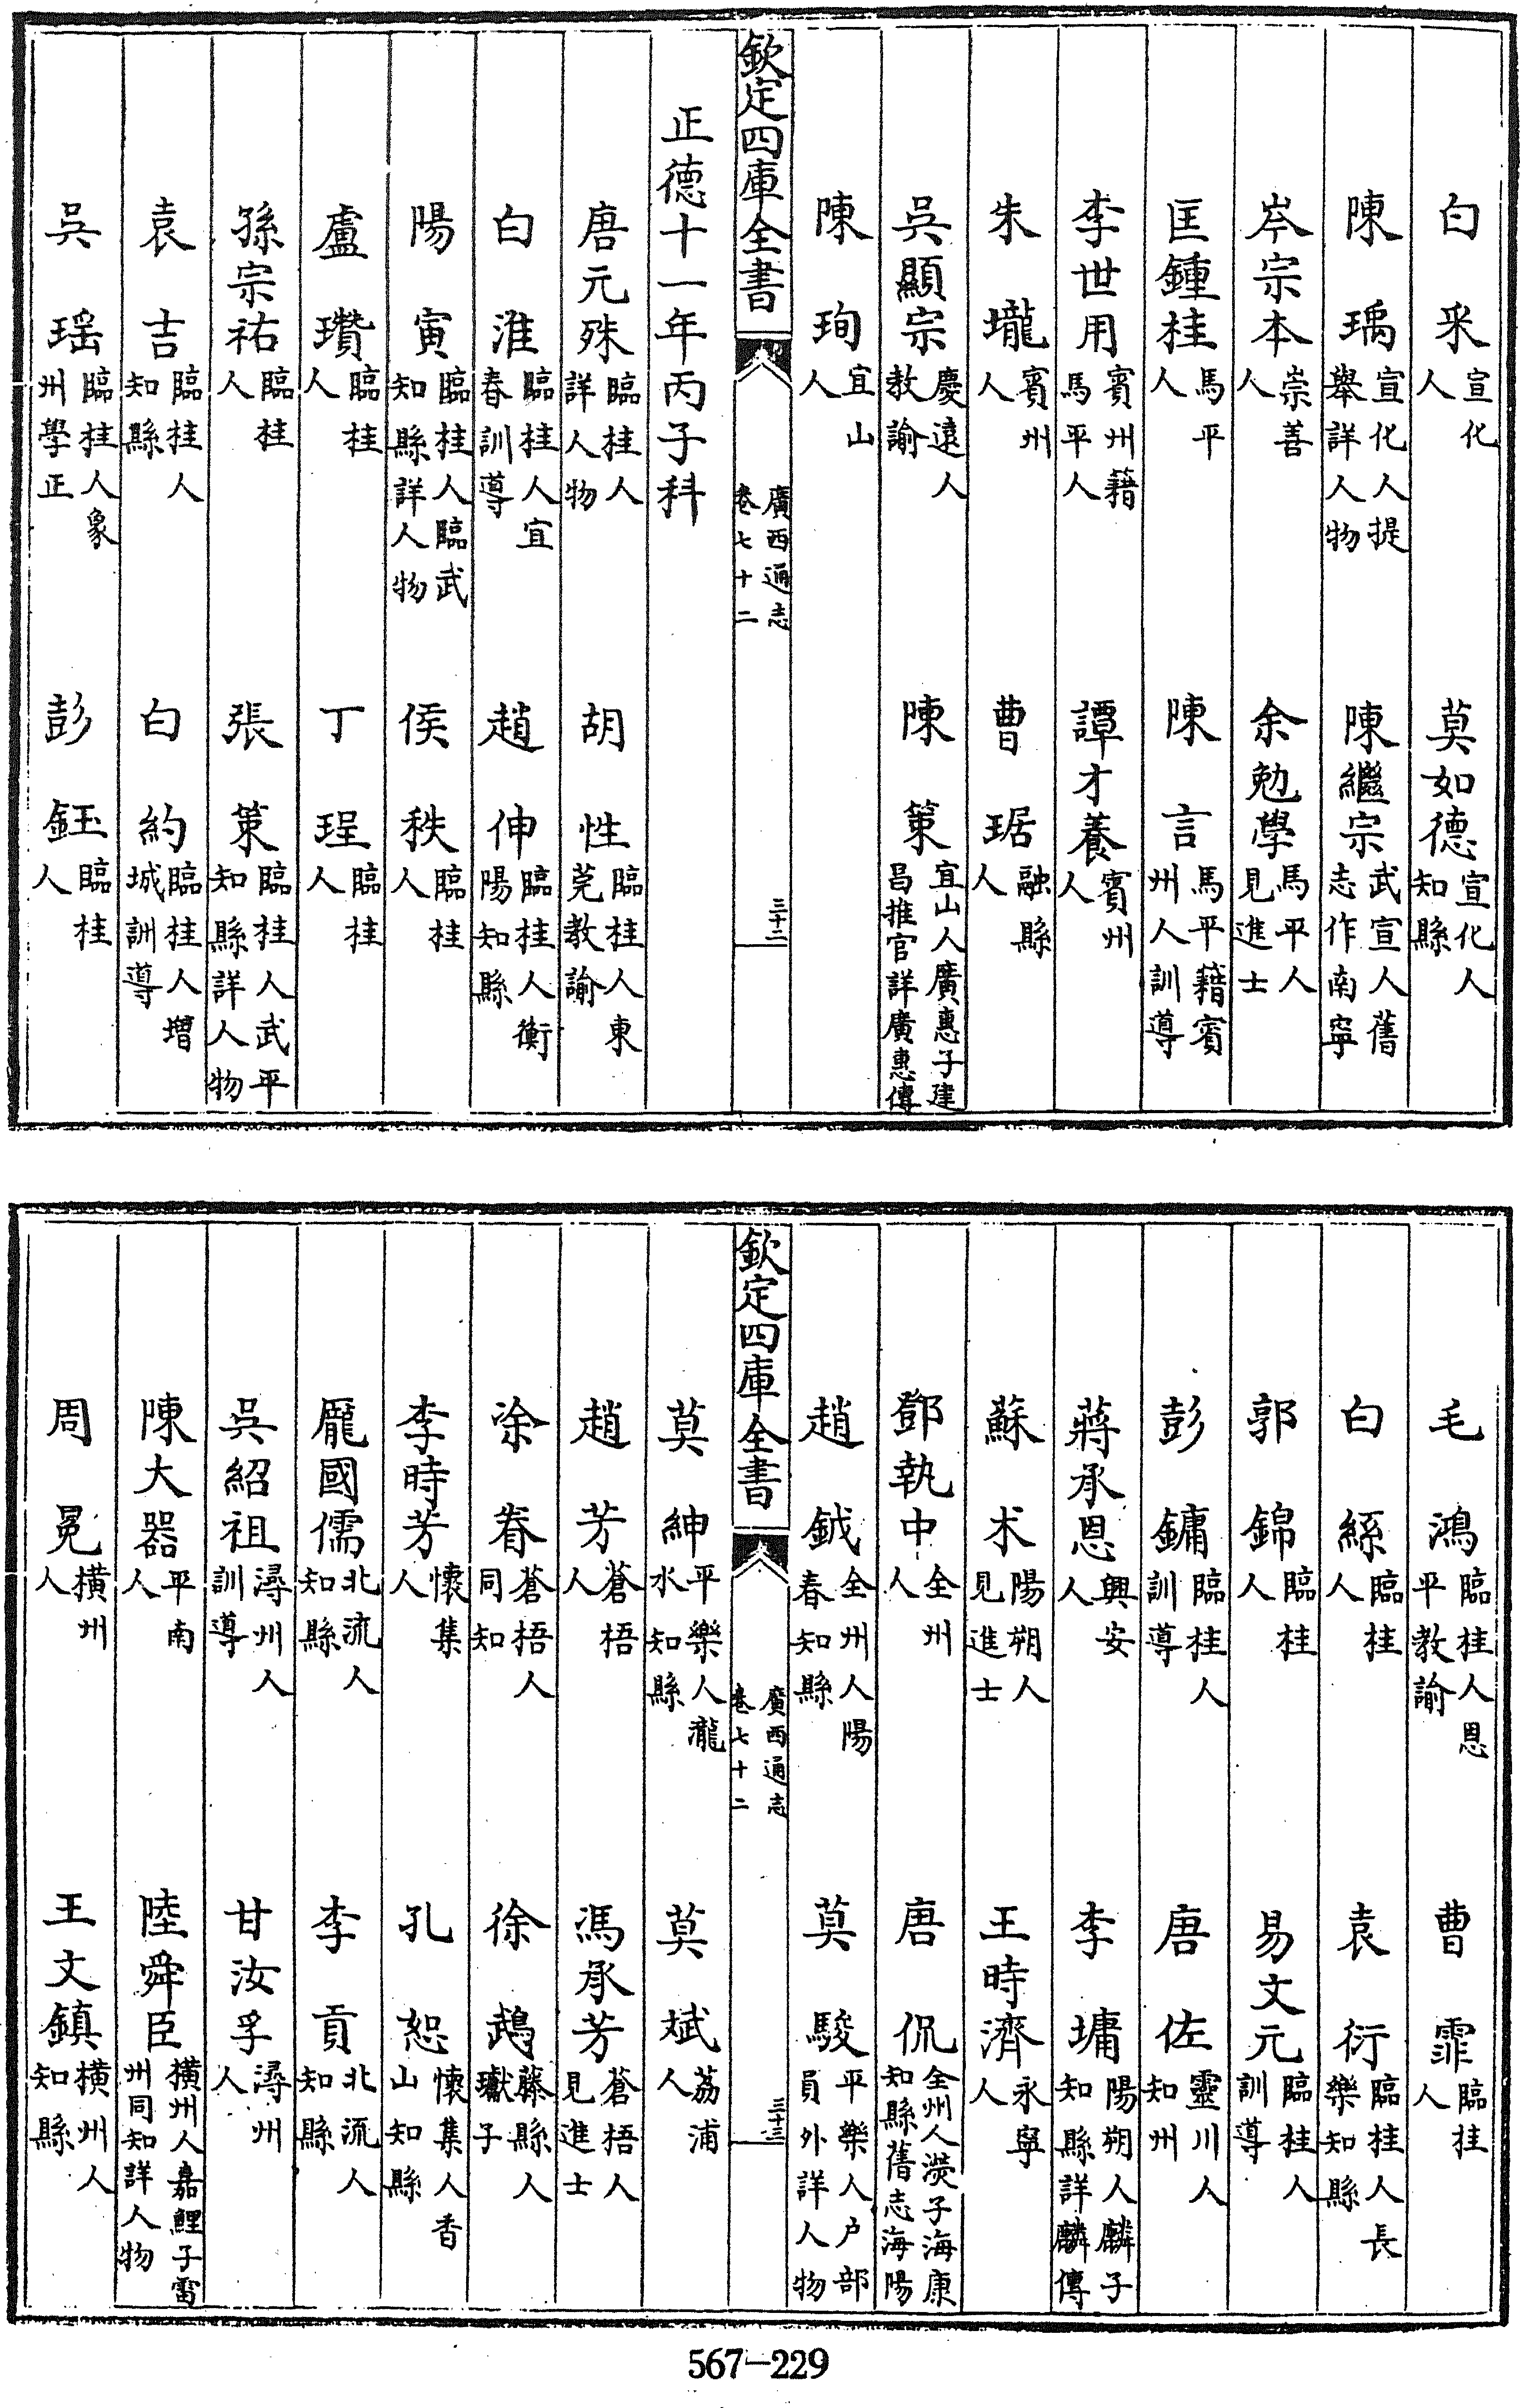 白釆宣化人 莫如德宣化人知縣
陳瑀宣化人提舉詳人物 陳繼宗武宣人舊志作南寧
岑宗本崇善人 余勉學馬平人見進士
匡鍾桂馬平人 陳言馬平籍賓州人訓導
李世用賓州籍馬平人 譚才養賓州人
朱壠賓州人 曹琚融縣人
吳顯宗慶遠人教諭 陳策宜山人廣惠子建昌推官詳廣惠傳
陳珣宜山人
欽定四庫全書 廣西通志卷七十二 三十二
正德十一年丙子科
唐元殊臨桂人詳人物 胡性臨桂人東莞教諭
白淮臨桂人宜春訓導 趙伸臨桂人衡陽知縣
陽寅臨桂人臨武知縣詳人物 侯秩臨桂人
盧瓚臨桂人 丁珵臨桂人
孫宗祐臨桂人 張策臨桂人武平知縣詳人物
袁吉臨桂人知縣 白約臨桂人增城訓導
吳瑶臨桂人象州學正 彭鈺臨桂人
毛鴻臨桂人恩平教諭 曹霏臨桂人
白綵臨桂人 袁衍臨桂人長樂知縣
郭錦臨桂人 易文元臨桂人訓導
彭鏞臨桂人訓導 唐佐靈川人知州
蔣承恩興安人 李墉陽朔人麟子知縣詳麟傳
蘇术陽朔人見進士 王時濟永寧人
鄧執中全州人 唐侃全州人濙子海康知縣舊志海陽
趙鉞全州人陽春知縣 莫駿平樂人户部員外詳人物
欽定四庫全書 廣西通志卷七十二 三十三
莫紳平樂人瀧水知縣 莫斌荔浦人
趙芳蒼梧人 馮承芳蒼梧人見進士
涂眷蒼梧人同知 徐鵡藤縣人瓛子
李時芳懷集人 孔恕懷集人香山知縣
龎國儒北流人知縣 李貢北流人知縣
吳紹祖潯州人訓導 甘汝孚潯州人
陳大器平南人 陸舜臣横州人嘉鯉子雷州同知詳人物
周冕横州人 王文鎮横州人知縣
567-229